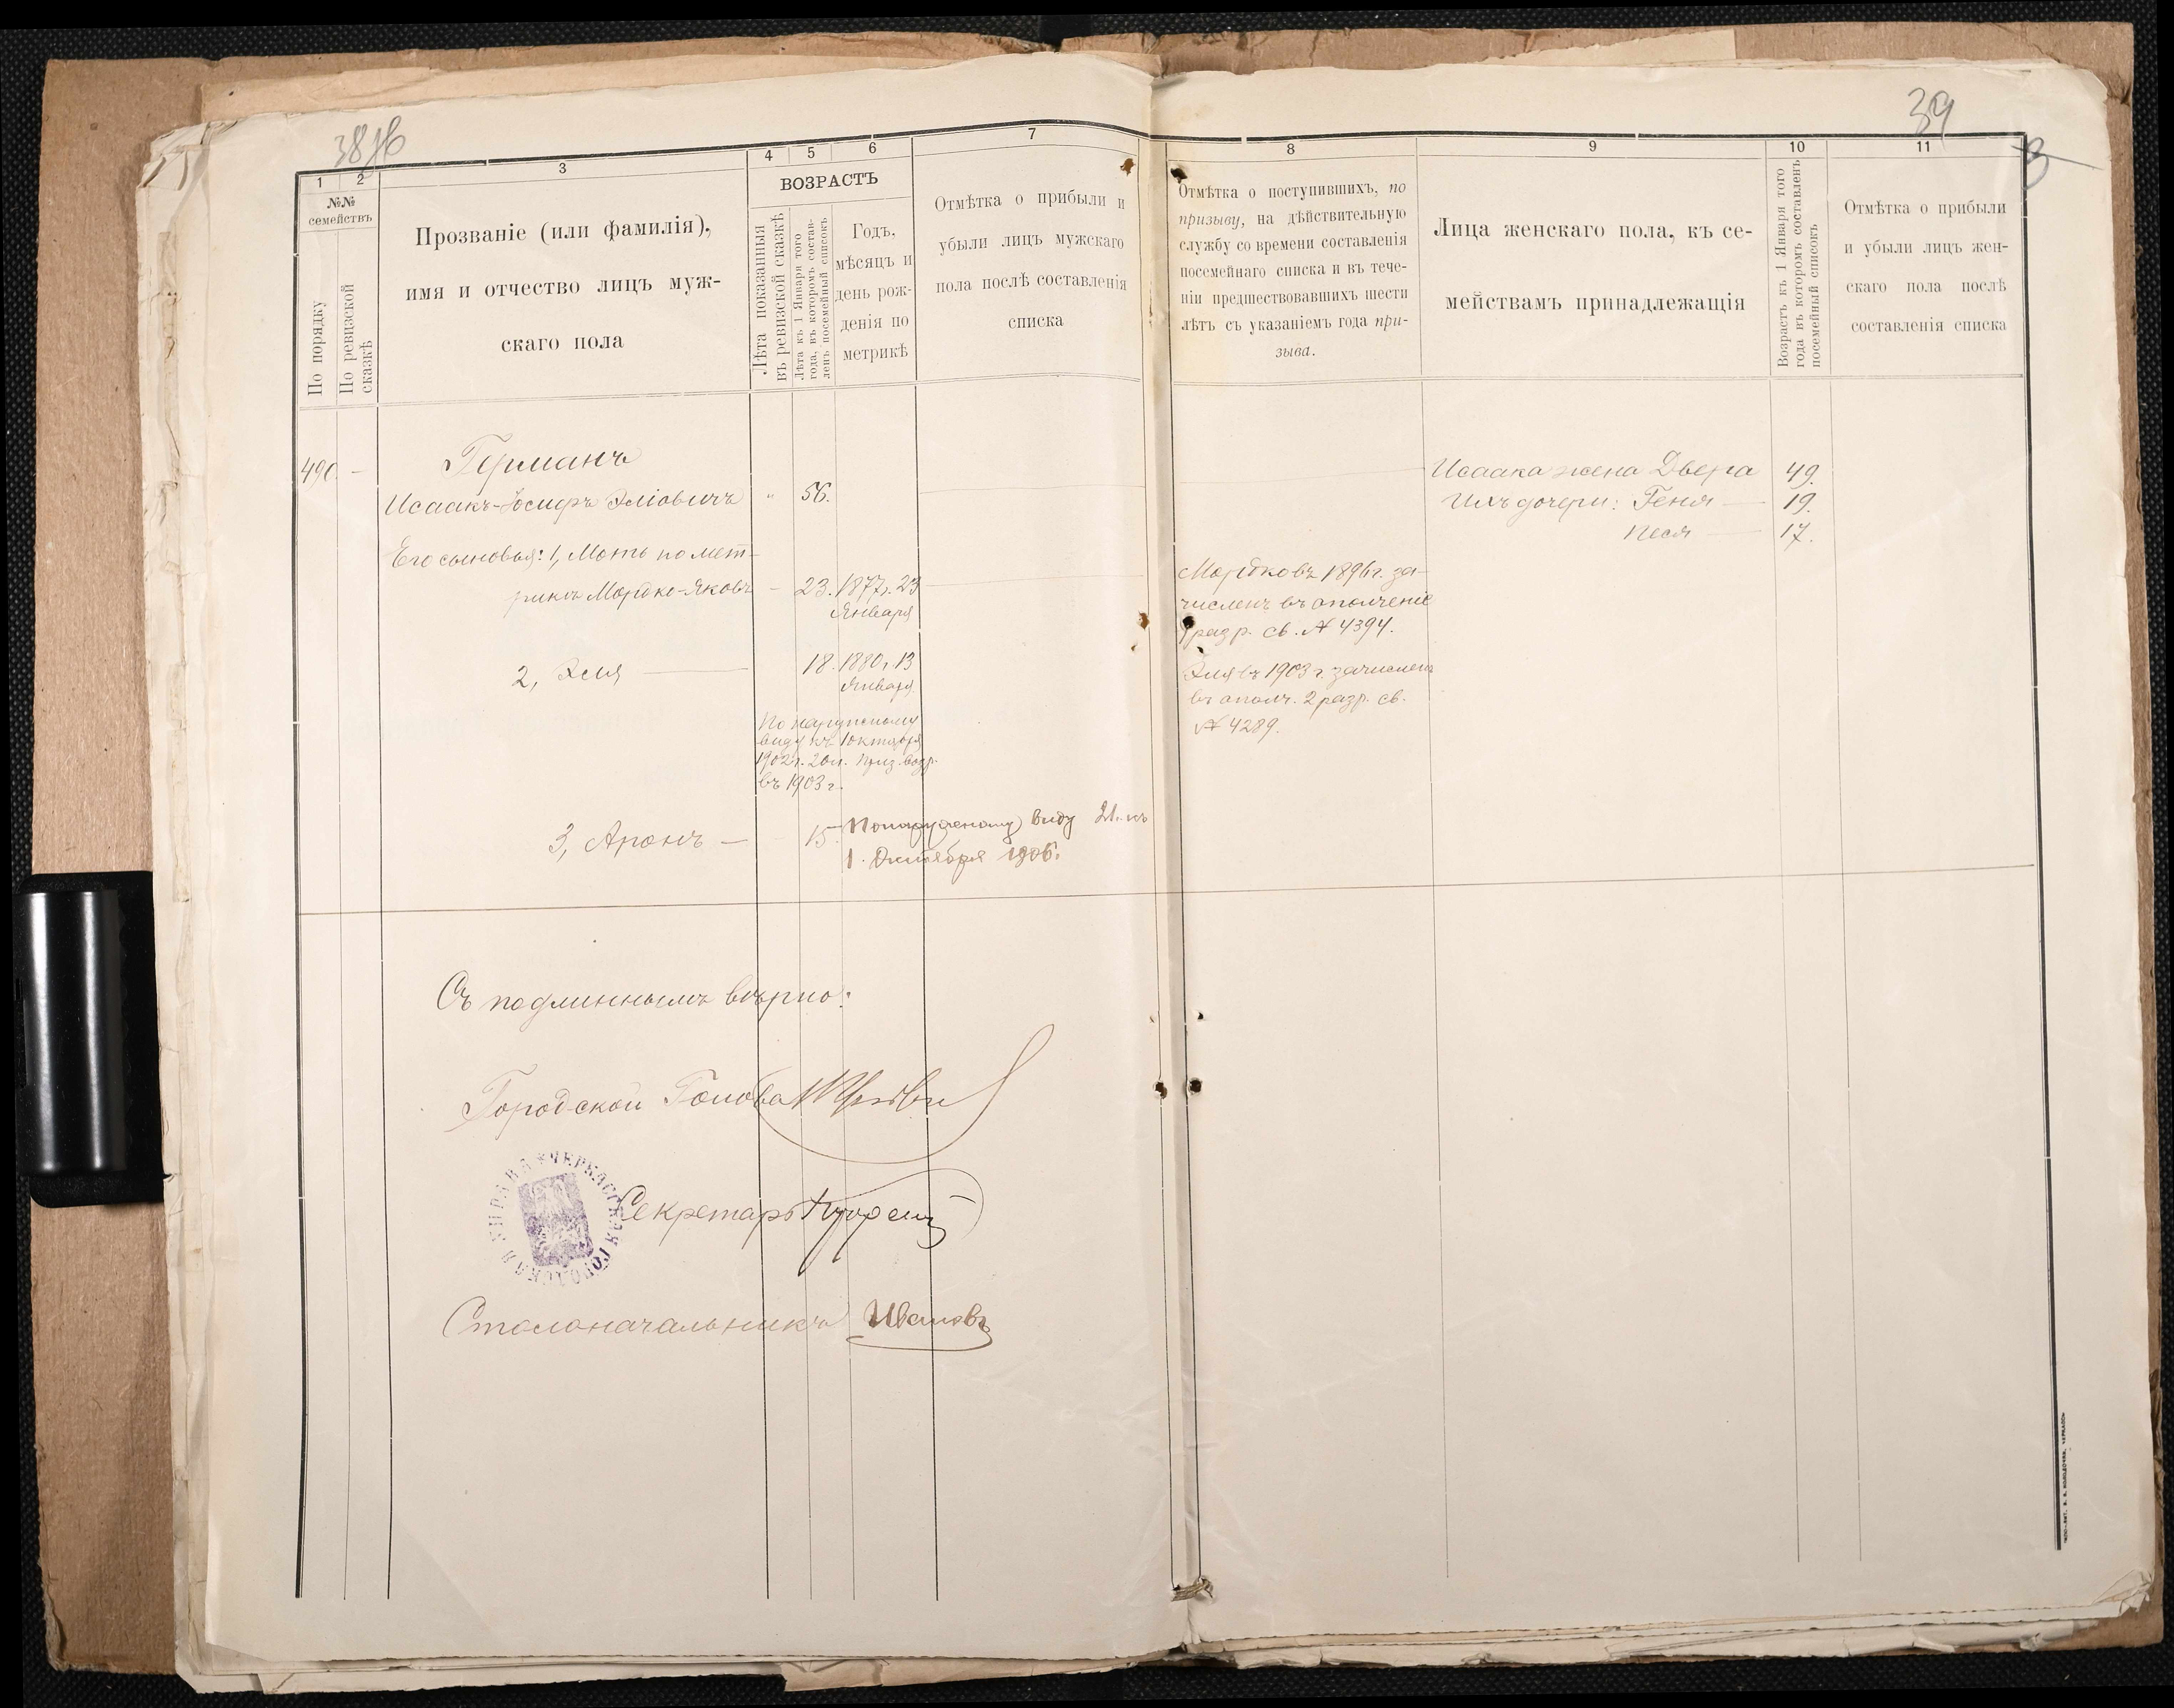 39
1
2
3
4
5
6
7
8
9
10
11
№№
семействъ
По порядку
По ревизской
сказкѣ
Прозваніе (или фамилія),
имя и отчество лицъ муж-
скаго пола
ВОЗРАСТЪ
Лѣта показанныя
въ ревизской сказкѣ
Лѣта къ 1 Января того
года, въ которомъ состав-
ленъ посемейный списокъ
Годъ,
мѣсяцъ и
день рож-
денія по
метрикѣ
Отмѣтка о прибыли и
убыли лицъ мужскаго
пола послѣ составленія
списка
Отмѣтка о поступившихъ, по
призыву, на дѣйствительную
службу со времени составленія
посемейнаго списка и въ тече-
ніи предшествовавшихъ шести
лѣтъ съ указаніемъ года при-
зыва.
Лица женскаго пола, къ се-
мействамъ принадлежащія
Возрастъ къ 1 Января того
года въ которомъ составленъ
посемейный списокъ
Отмѣтка о прибыли
и убыли лицъ жен-
скаго пола послѣ
составленія списка
490. - Германъ
Исаакъ-Іосифъ Эліовичъ " 56.
Исаака жена Двера 49.
Ихъ дочери: Геня — 19.
Песя — 17.
Его сыновья: 1, Моть по мет-
рикѣ Мордко-Яковъ - 23. 1877г. 23
Января
Мордко въ 1896г. за-
численъ въ ополченіе
1 разр. св. № 4394.
2, Эля — 18. 1880г. 13
Января
Эля въ 1903 г. зачисленъ
въ ополч. 2 разр. св.
№ 4289.
По наружному
виду къ 1 октября
1902 г. 20 л. приз. возр.
въ 1903 г.
3, Аронъ — 15. По наружному виду 21 л. къ
1. Октября 1906.
Съ подлиннымъ вѣрно:
Городской Голова
ЧЕРКАССКАЯ ГОРОДСКАЯ УПРАВА
Секретарь
Столоначальникъ Ивановъ